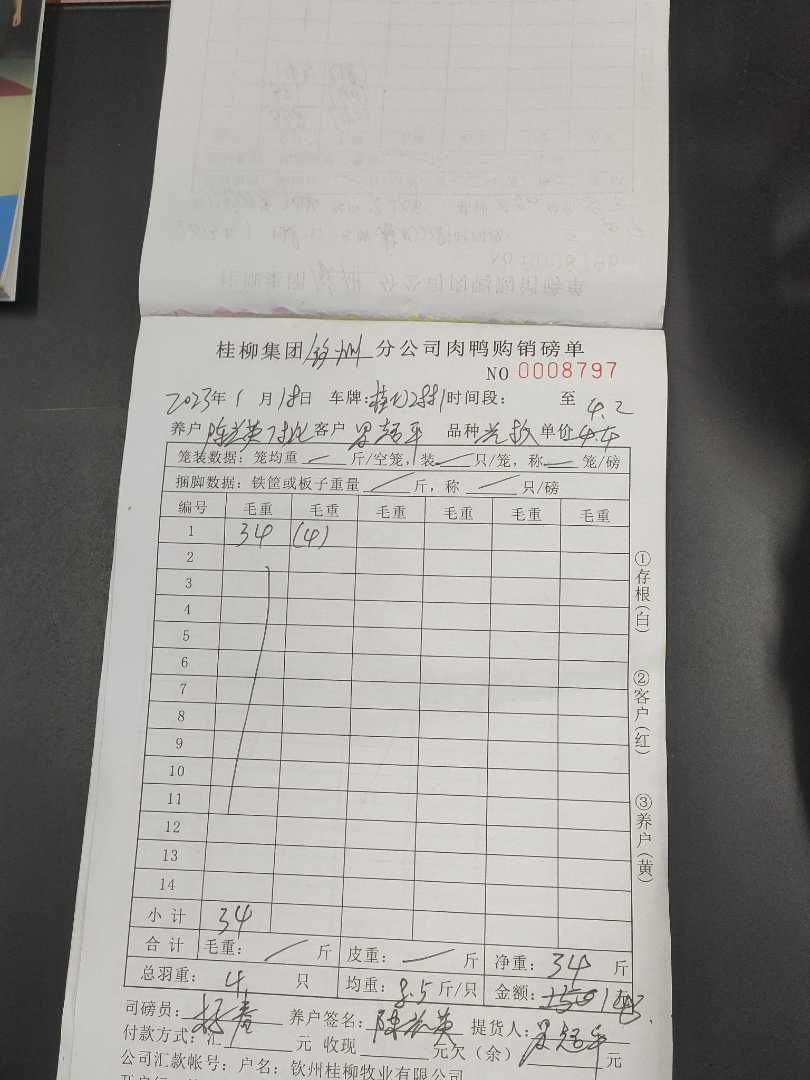 桂柳集团钦州分公司肉鸭购销磅单
NO 0008797
2023年1月18日 车牌: 时间段: 至
4.2
养户 客户 品种 单价4.4
笼装数据: 笼均重 斤/空笼, 装 只/笼, 称 笼/磅
捆脚数据: 铁筐或板子重量 斤, 称 只/磅
编号 毛重 毛重 毛重 毛重 毛重 毛重
1 34 (4)
2
3
4
5
6
7
8
9
10
11
12
13
14
小计 34
合计 毛重: 斤 皮重: 斤 净重: 34 斤
总羽重: 4 只 均重: 8.5 斤/只 金额:
司磅员: 养户签名: 提货人:
付款方式: 汇 元 收现 元欠(余) 元
公司汇款帐号: 户名: 钦州桂柳牧业有限公司
①存根(白)
②客户(红)
③养户(黄)